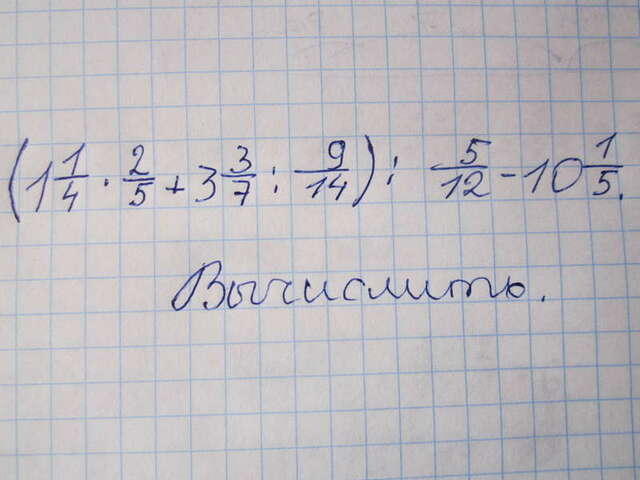 (1 1/4 · 2/5 + 3 3/7 : 9/14) : 5/12 - 10 1/5.
Вычислить.